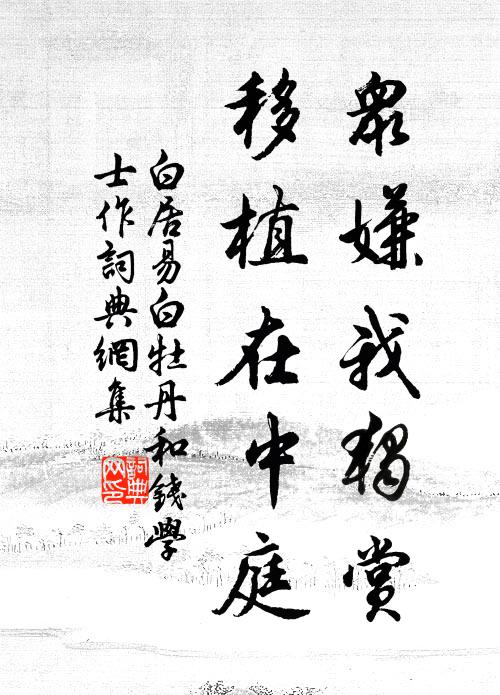 眾嫌我獨賞
移植在中庭
白居易白牡丹和錢學
士作詞典網集
詞典網印